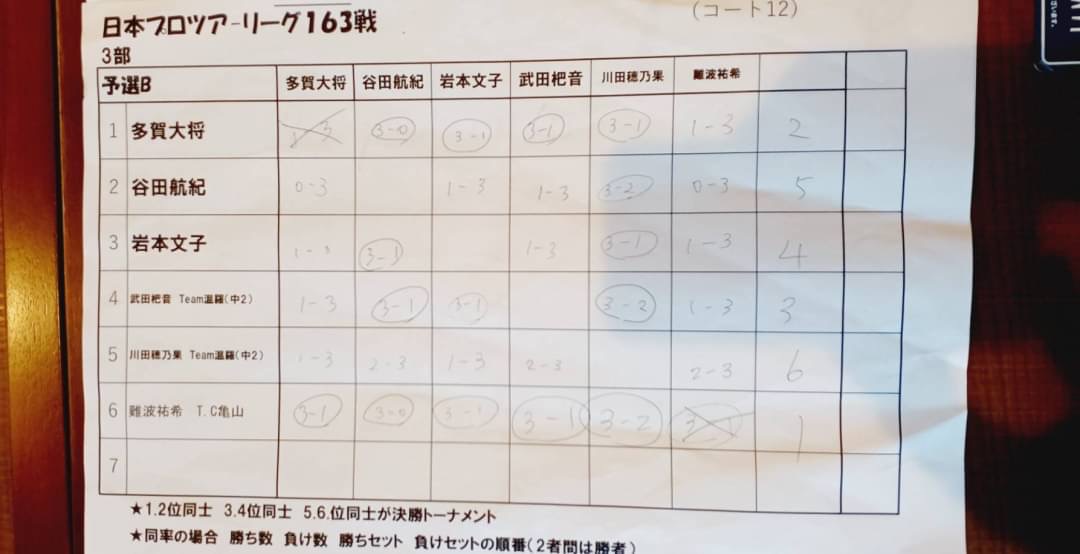 (コート12)
日本プロツアーリーグ163戦
3部
予選B 多賀大将 谷田航紀 岩本文子 武田杷音 川田穂乃果 難波祐希
1 多賀大将 3-0 3-1 3-1 3-1 1-3 2
2 谷田航紀 0-3 1-3 1-3 3-2 0-3 5
3 岩本文子 1-3 3-1 1-3 3-1 1-3 4
4 武田杷音 Team温羅(中2) 1-3 3-1 3-1 3-2 1-3 3
5 川田穂乃果 Team温羅(中2) 1-3 2-3 1-3 2-3 2-3 6
6 難波祐希 T.C亀山 3-1 3-0 3-1 3-1 3-2 1
7
★1.2位同士 3.4位同士 5.6.位同士が決勝トーナメント
★同率の場合 勝ち数 負け数 勝ちセット 負けセットの順番(2者間は勝者)